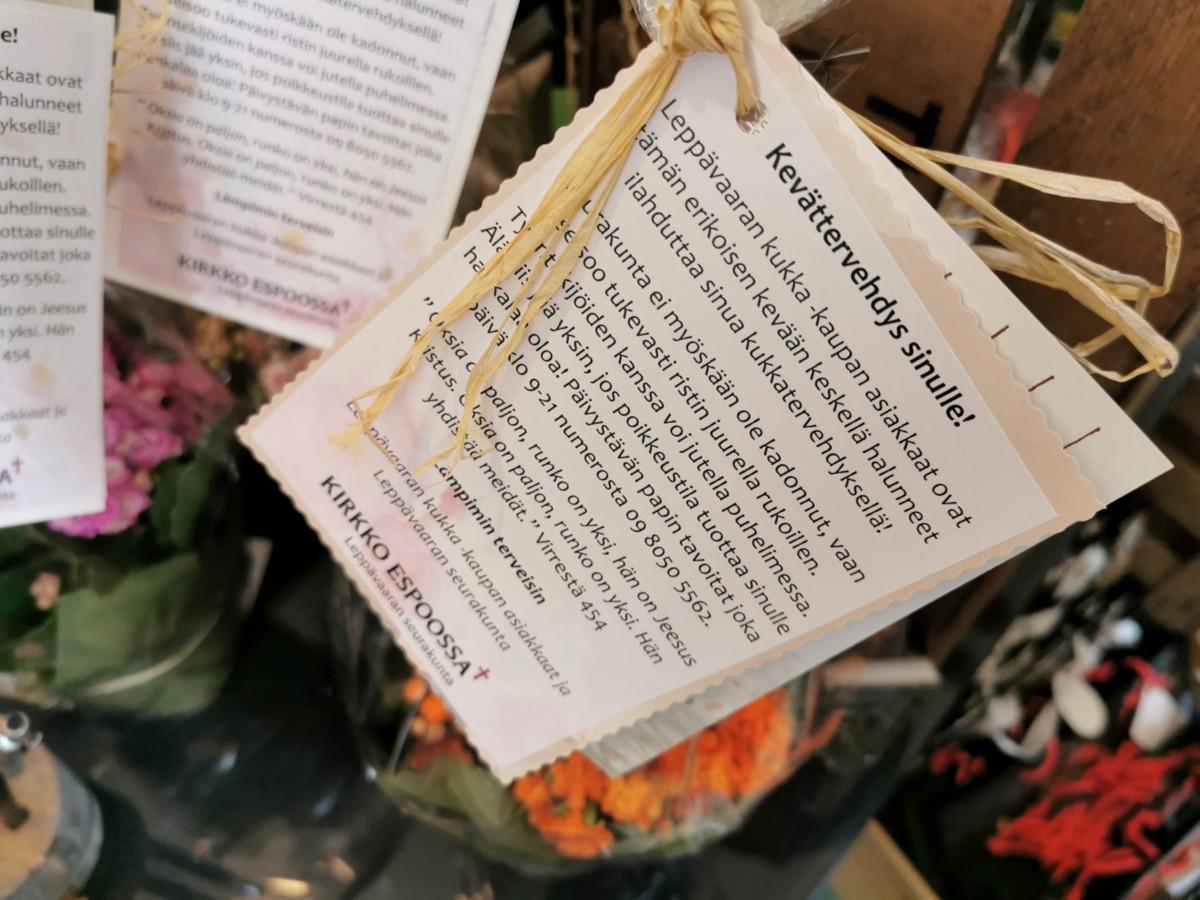 e!
kkaat ovat
halunneet
yksellä!
nnut, vaan
ukoillen.
uhelimessa.
ottaa sinulle
avoitat joka
50 5562.
n on Jeesus
yksi. Hän
454
halunneet
katervehdyksellä!
ei myöskään ole kadonnut, vaan
seisoo tukevasti ristin juurella rukoillen.
ntekijöiden kanssa voi jutella puhelimessa.
siis jää yksin, jos poikkeustila tuottaa sinulle
nkalaa oloa! Päivystävän papin tavoitat joka
päivä klo 9-21 numerosta 09 8050 5562.
" Oksia on paljon, runko on yksi, hän on Jeesus
Kristus. Oksia on paljon, runko on yksi. Hän
yhdistää meidät. " Virrestä 454
Lämpimin terveisin
Leppävaaran kukka -kaupan asiakkaat ja
Leppävaaran seurakunta
KIRKKO ESPOOSSA
Leppävaaran seurakunta
Kevättervehdys sinulle!
Leppävaaran kukka -kaupan asiakkaat ovat
tämän erikoisen kevään keskellä halunneet
ilahduttaa sinua kukkatervehdyksellä!
urakunta ei myöskään ole kadonnut, vaan
seisoo tukevasti ristin juurella rukoillen.
Työntekijöiden kanssa voi jutella puhelimessa.
Älä siis jää yksin, jos poikkeustila tuottaa sinulle
hankalaa oloa! Päivystävän papin tavoitat joka
päivä klo 9-21 numerosta 09 8050 5562.
" Oksia on paljon, runko on yksi, hän on Jeesus
Kristus. Oksia on paljon, runko on yksi. Hän
yhdistää meidät. " Virrestä 454
Lämpimin terveisin
Leppävaaran kukka -kaupan asiakkaat ja
Leppävaaran seurakunta
KIRKKO ESPOOSSA
Leppävaaran seurakunta